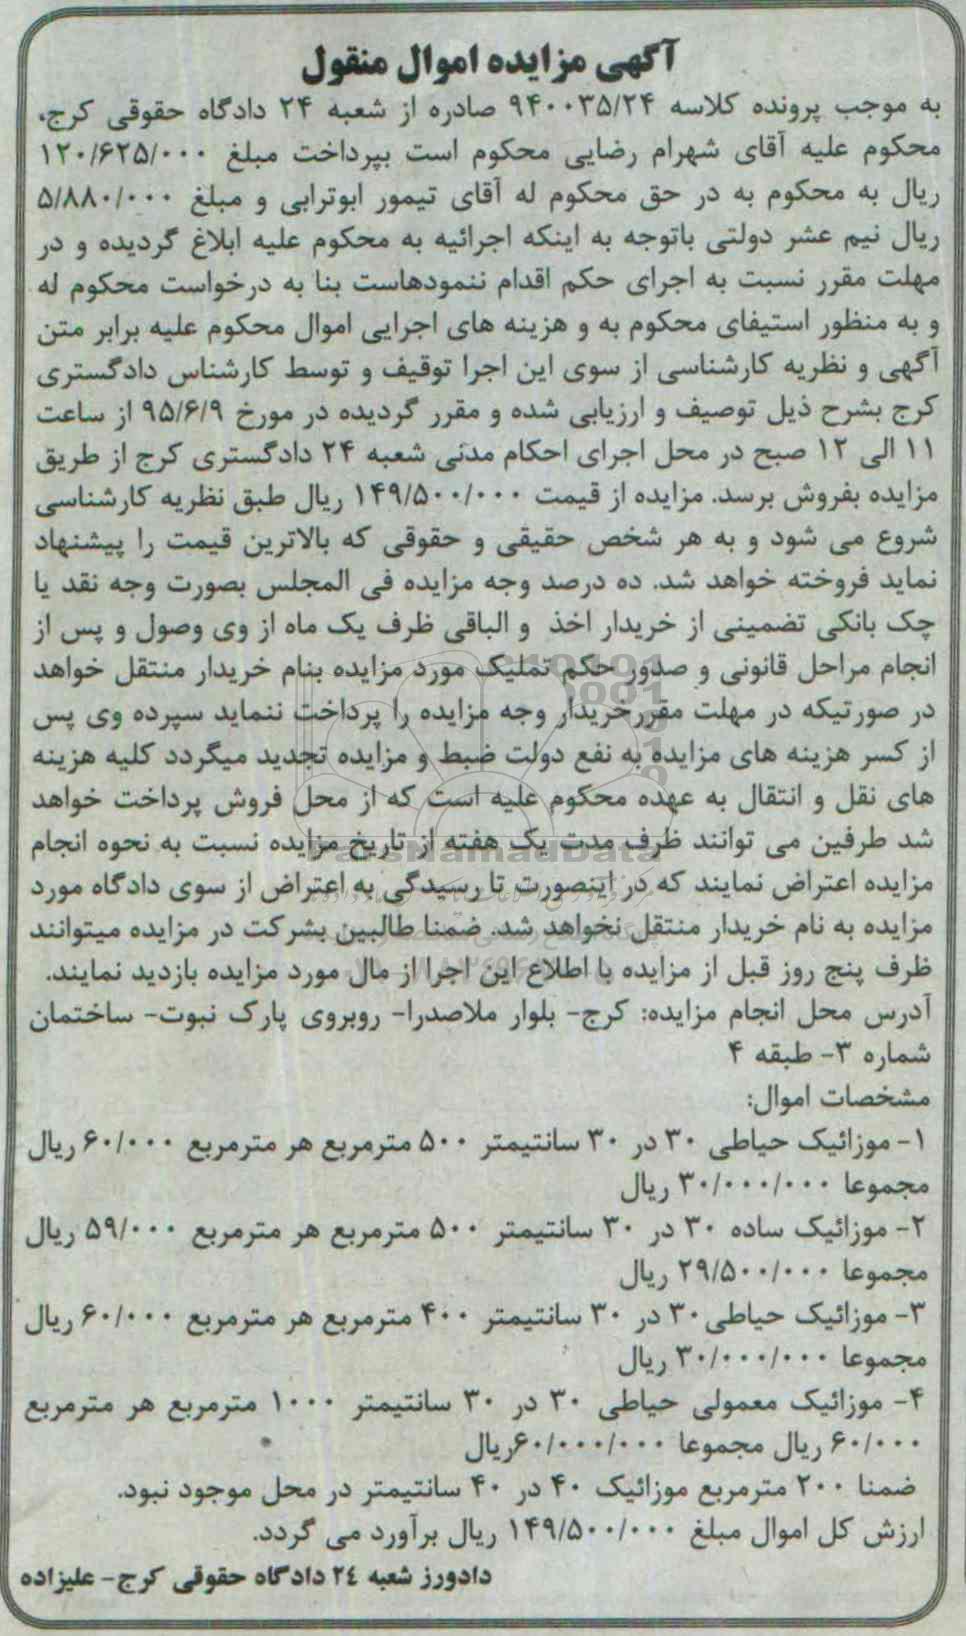 آگهی مزایده اموال منقول
به موجب پرونده کلاسه ۹۴۰۰۳۵/۲۴ صادره از شعبه ۲۴ دادگاه حقوقی کرج،
محکوم علیه آقای شهرام رضایی محکوم است بپرداخت مبلغ ۱۲۰/۶۲۵/۰۰۰
ریال به محکوم به در حق محکوم له آقای تیمور ابوترابی و مبلغ ۵/۸۸۰/۰۰۰
ریال نیم عشر دولتی باتوجه به اینکه اجرائیه به محکوم علیه ابلاغ گردیده و در
مهلت مقرر نسبت به اجرای حکم اقدام ننمودهاست بنا به درخواست محکوم له
و به منظور استیفای محکوم به و هزینه های اجرایی اموال محکوم علیه برابر متن
آگهی و نظریه کارشناسی از سوی این اجرا توقیف و توسط کارشناس دادگستری
کرج بشرح ذیل توصیف و ارزیابی شده و مقرر گردیده در مورخ ۹۵/۶/۹ از ساعت
۱۱ الی ۱۲ صبح در محل اجرای احکام مدنی شعبه ۲۴ دادگستری کرج از طریق
مزایده بفروش برسد. مزایده از قیمت ۱۴۹/۵۰۰/۰۰۰ ریال طبق نظریه کارشناسی
شروع می شود و به هر شخص حقیقی و حقوقی که بالاترین قیمت را پیشنهاد
نماید فروخته خواهد شد. ده درصد وجه مزایده فی المجلس بصورت وجه نقد یا
چک بانکی تضمینی از خریدار اخذ و الباقی ظرف یک ماه از وی وصول و پس از
انجام مراحل قانونی و صدور حکم تملیک مورد مزایده بنام خریدار منتقل خواهد
در صورتیکه در مهلت مقررخریدار وجه مزایده را پرداخت ننماید سپرده وی پس
از کسر هزینه های مزایده به نفع دولت ضبط و مزایده تجدید میگردد کلیه هزینه
های نقل و انتقال به عهده محکوم علیه است که از محل فروش پرداخت خواهد
شد طرفین می توانند ظرف مدت یک هفته از تاریخ مزایده نسبت به نحوه انجام
مزایده اعتراض نمایند که در اینصورت تا رسیدگی به اعتراض از سوی دادگاه مورد
مزایده به نام خریدار منتقل نخواهد شد. ضمنا طالبین بشرکت در مزایده میتوانند
ظرف پنج روز قبل از مزایده با اطلاع این اجرا از مال مورد مزایده بازدید نمایند.
آدرس محل انجام مزایده: کرج- بلوار ملاصدرا- روبروی پارک نبوت- ساختمان
شماره ۳- طبقه ۴
مشخصات اموال:
۱- موزائیک حیاطی ۳۰ در ۳۰ سانتیمتر ۵۰۰ مترمربع هر مترمربع ۶۰/۰۰۰ ریال
مجموعا ۳۰/۰۰۰/۰۰۰ ریال
۲- موزائیک ساده ۳۰ در ۳۰ سانتیمتر ۵۰۰ مترمربع هر مترمربع ۵۹/۰۰۰ ریال
مجموعا ۲۹/۵۰۰/۰۰۰ ریال
۳- موزائیک حیاطی۳۰ در ۳۰ سانتیمتر ۴۰۰ مترمربع هر مترمربع ۶۰/۰۰۰ ریال
مجموعا ۳۰/۰۰۰/۰۰۰ ریال
۴- موزائیک معمولی حیاطی ۳۰ در ۳۰ سانتیمتر ۱۰۰۰ مترمربع هر مترمربع
۶۰/۰۰۰ ریال مجموعا ۶۰/۰۰۰/۰۰۰ریال
ضمنا ۲۰۰ مترمربع موزائیک ۴۰ در ۴۰ سانتیمتر در محل موجود نبود.
ارزش کل اموال مبلغ ۱۴۹/۵۰۰/۰۰۰ ریال برآورد می گردد.
دادورز شعبه ۲۴ دادگاه حقوقی کرج- علیزاده
ParsNamadData